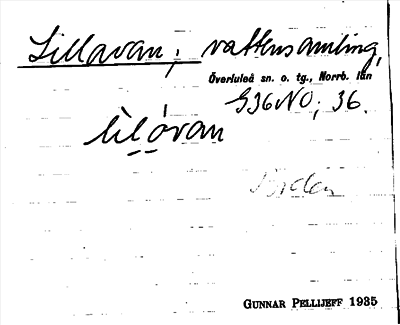 Lillavan; vattensamling,
Överluleå sn. o. tg., Norrb. län
G36NO; 36.
lìlóvan
GUNNAR PELLIJEFF 1935